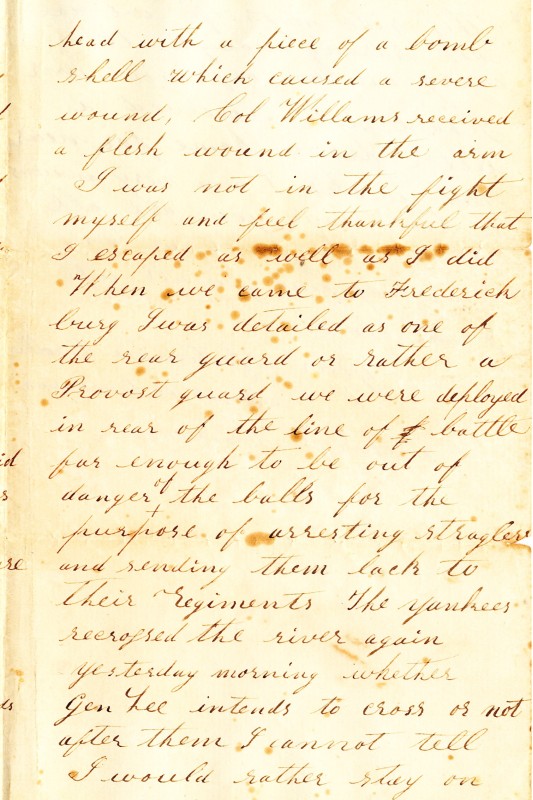 head with a piece of a bomb
shell which caused a severe
wound, Col Willams received
a flesh wound in the arm
I was not in the fight
myself and feel thankful that
I escaped as well as I did
When we came to Frederick
burg I was detailed as one of
the rear guard or rather a
Provost guard we were deployed
in rear of the line of battle
far enough to be out of
danger of the balls for the
purpose of arresting straglers
and sending them back to
their Regiments The yankees
recrossed the river again
yesterday morning whether
Gen Lee intends to cross or not
after them I cannot tell
I would rather stay on